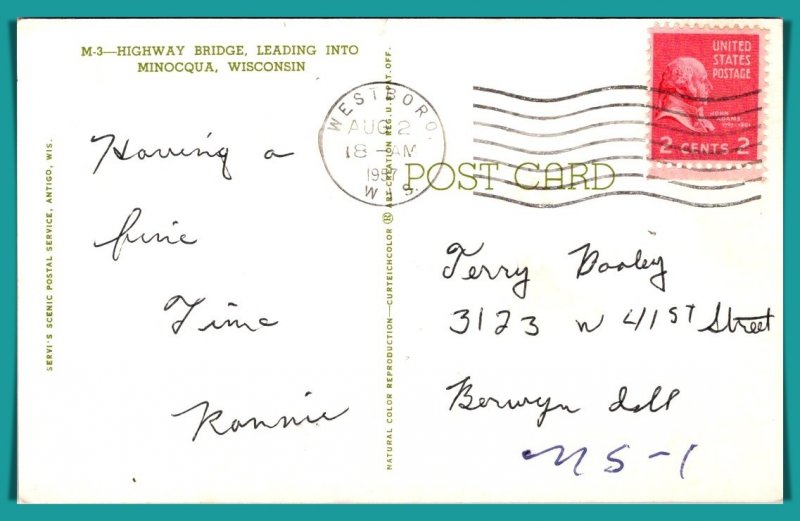 M-3—HIGHWAY BRIDGE, LEADING INTO
MINOCQUA, WISCONSIN
SERVI'S SCENIC POSTAL SERVICE, ANTIGO, WIS.
Having a
fine
Time
Ronnie
NATURAL COLOR REPRODUCTION—CURTEICHCOLOR ® ART-CREATION REG. U.S. PAT. OFF.
WESTBORO,
AUG 2
18-AM
1957
WIS.
POST CARD
UNITED
STATES
POSTAGE
JOHN
ADAMS
1797-1801
2 CENTS 2
Terry Dooley
3123 W 41ST Street
Berwyn Ill
MS-1